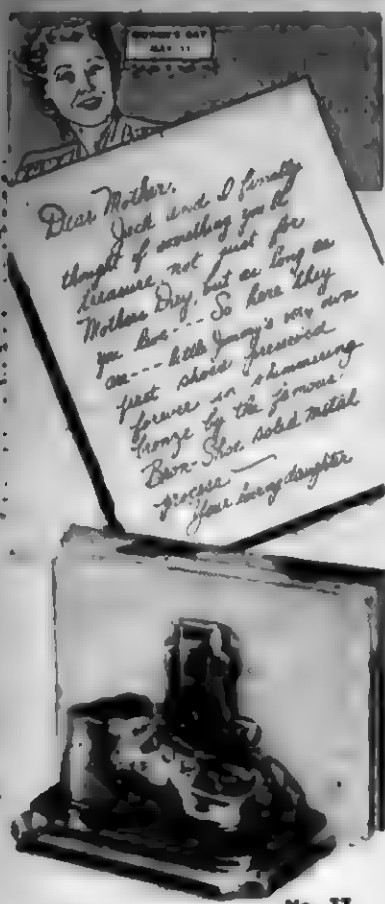 MOTHER'S DAY
MAY 11
Dear Mother,
Jack and I finally
thought of something you'll
treasure not just for
Mothers Day, but as long as
you live --- So here they
are --- little Jimmy's very own
first shoes preserved
forever in shimmering
bronze by the famous
Bron-Shoe solid metal
process —
Your loving daughter
No. II